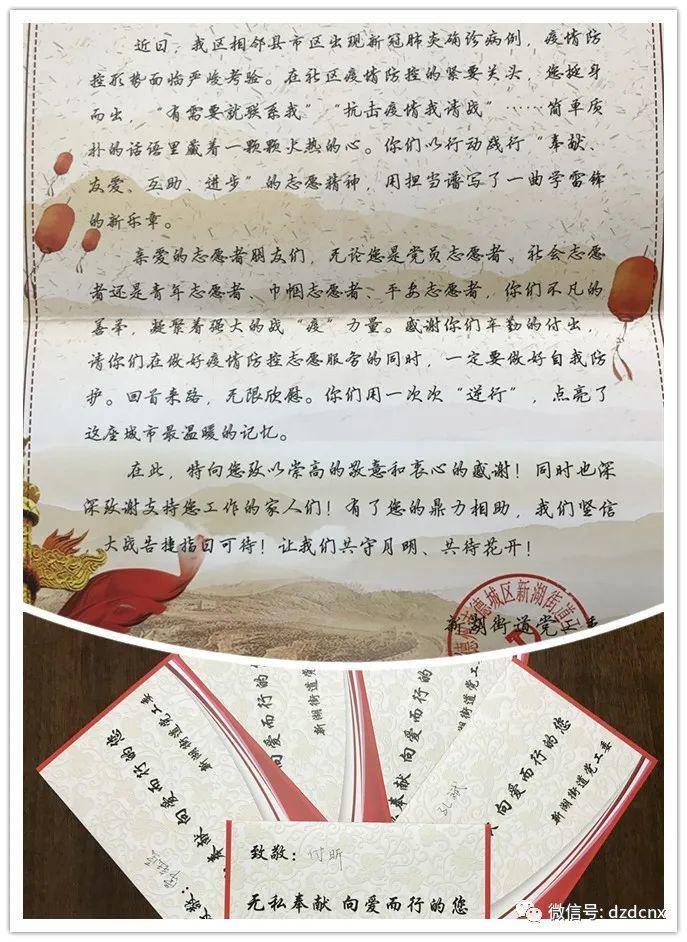 近日，我区相邻县市区出现新冠肺炎确诊病例，疫情防
控形势面临严峻考验。在社区疫情防控的紧要关头，您挺身
而出，“有需要就联系我”“抗击疫情我请战”……简单质
朴的话语里藏着一颗颗火热的心。你们以行动践行“奉献、
友爱、互助、进步”的志愿精神，用担当谱写了一曲学雷锋
的新乐章。
亲爱的志愿者朋友们，无论您是党员志愿者、社会志愿
者还是青年志愿者、巾帼志愿者、平安志愿者，你们不凡的
善举，凝聚着强大的战“疫”力量。感谢你们辛勤的付出，
请你们在做好疫情防控志愿服务的同时，一定要做好自我防
护。回首来路，无限欣慰。你们用一次次“逆行”，点亮了
这座城市最温暖的记忆。
在此，特向您致以崇高的敬意和衷心的感谢！同时也深
深致谢支持您工作的家人们！有了您的鼎力相助，我们坚信
大战告捷指日可待！让我们共守月明、共待花开！
德城区新湖街道
新湖街道党工委
向爱而行的您
新湖街道党工委
向爱而行的
新湖街道党
向爱而行的
湖街道党工委
奉献 向爱而行的您
新湖街道党工委
孔斌
致敬：付昕
无私奉献 向爱而行的您
微信号: dzdcnx